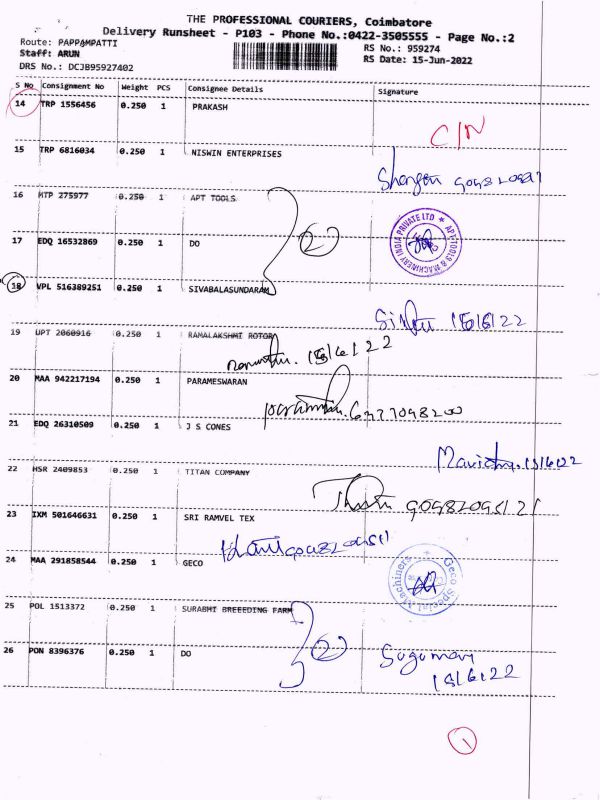 THE PROFESSIONAL COURIERS, Coimbatore
Delivery Runsheet - P103 - Phone No.:0422-3505555 - Page No.:2
Route: PAPPAMPATTI
Staff: ARUN
DRS No.: DCJB95927402
RS No.: 959274
RS Date: 15-Jun-2022
S No Consignment No Weight PCS Consignee Details Signature
14 TRP 1556456 0.250 1 PRAKASH
C/N
15 TRP 6816034 0.250 1 NISWIN ENTERPRISES
16 MTP 275977 0.250 1 APT TOOLS
17 EDQ 16532869 0.250 1 DO
2
APT TOOLS & MACHINERY INDIA PRIVATE LTD
18 VPL 516389251 0.250 1 SIVABALASUNDARAM
15/6/22
19 UPT 2060916 0.250 1 RAMALAKSHMI ROTOR
15/6/22
20 MAA 942217194 0.250 1 PARAMESWARAN
21 EDQ 26310509 0.250 1 J S CONES
15/6/22
22 HSR 2409853 0.250 1 TITAN COMPANY
23 IXM 501646631 0.250 1 SRI RAMVEL TEX
24 MAA 291858544 0.250 1 GECO
Geco Special Machiners
25 POL 1513372 0.250 1 SURABHI BREEEDING FARM
2
26 PON 8396376 0.250 1 DO
Sugumar
15/6/22
1